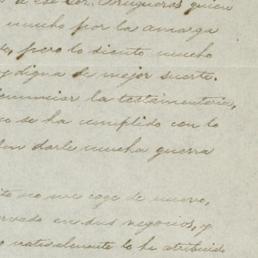 a ese Sor. Brugueras quien
mucho por la amarga
pero lo siento mucho
y digna de mejor suerte.
renunciar la testamentaria,
se ha cumplido con lo
darle mucha guerra
no me coge de nuevo,
en sus negocios, y
naturalmente lo he atribuido